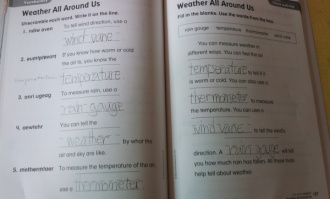 Weather All Around Us
Unscramble each word. Write it on the line.
1. To tell wind direction, use a
wind vane
2.
If you know how warm or cold
the air is, you know the
temperature
3. To measure rain, use a
rain gauge
4.
You can tell the
weather by what the
air and sky are like.
5. To measure the temperature of the air,
use a thermometer.
Weather All Around Us
Fill in the blanks. Use the words from the box.
rain gauge temperature thermometer wind vane
You can measure weather in
different ways. You can feel the air
temperature to tell if it
is warm or cold. You can also use a
thermometer to measure
the temperature. You can use a
wind vane to tell the wind's
direction. A rain gauge will tell
you how much rain has fallen. All these tools
help tell about weather.